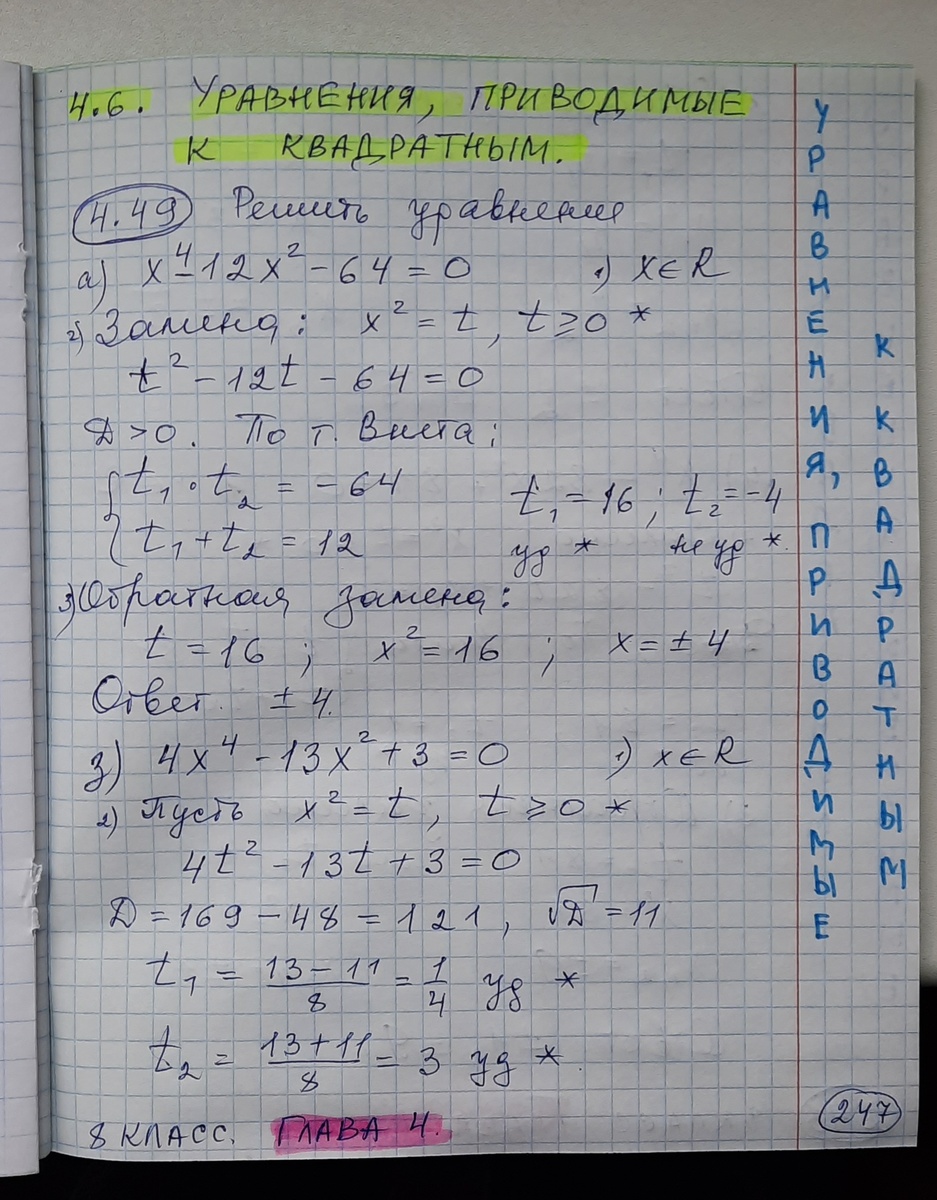 4.6. УРАВНЕНИЯ, ПРИВОДИМЫЕ
К КВАДРАТНЫМ.
4.49 Решить уравнение
а) x⁴ - 12x² - 64 = 0 1) x ∈ R
2) Замена: x² = t, t ≥ 0 *
t² - 12t - 64 = 0
D > 0. По т. Виета:
{ t₁ · t₂ = -64
{ t₁ + t₂ = 12
t₁ = 16; t₂ = -4
уд * не уд *.
3) Обратная замена:
t = 16; x² = 16; x = ± 4
Ответ. ± 4.
з) 4x⁴ - 13x² + 3 = 0 1) x ∈ R
2) Пусть x² = t, t ≥ 0 *
4t² - 13t + 3 = 0
D = 169 - 48 = 121, √D = 11
t₁ = (13 - 11)/8 = 1/4 уд *
t₂ = (13 + 11)/8 = 3 уд *.
8 КЛАСС. ГЛАВА 4.
247
УРАВНЕНИЯ, ПРИВОДИМЫЕ
К КВАДРАТНЫМ